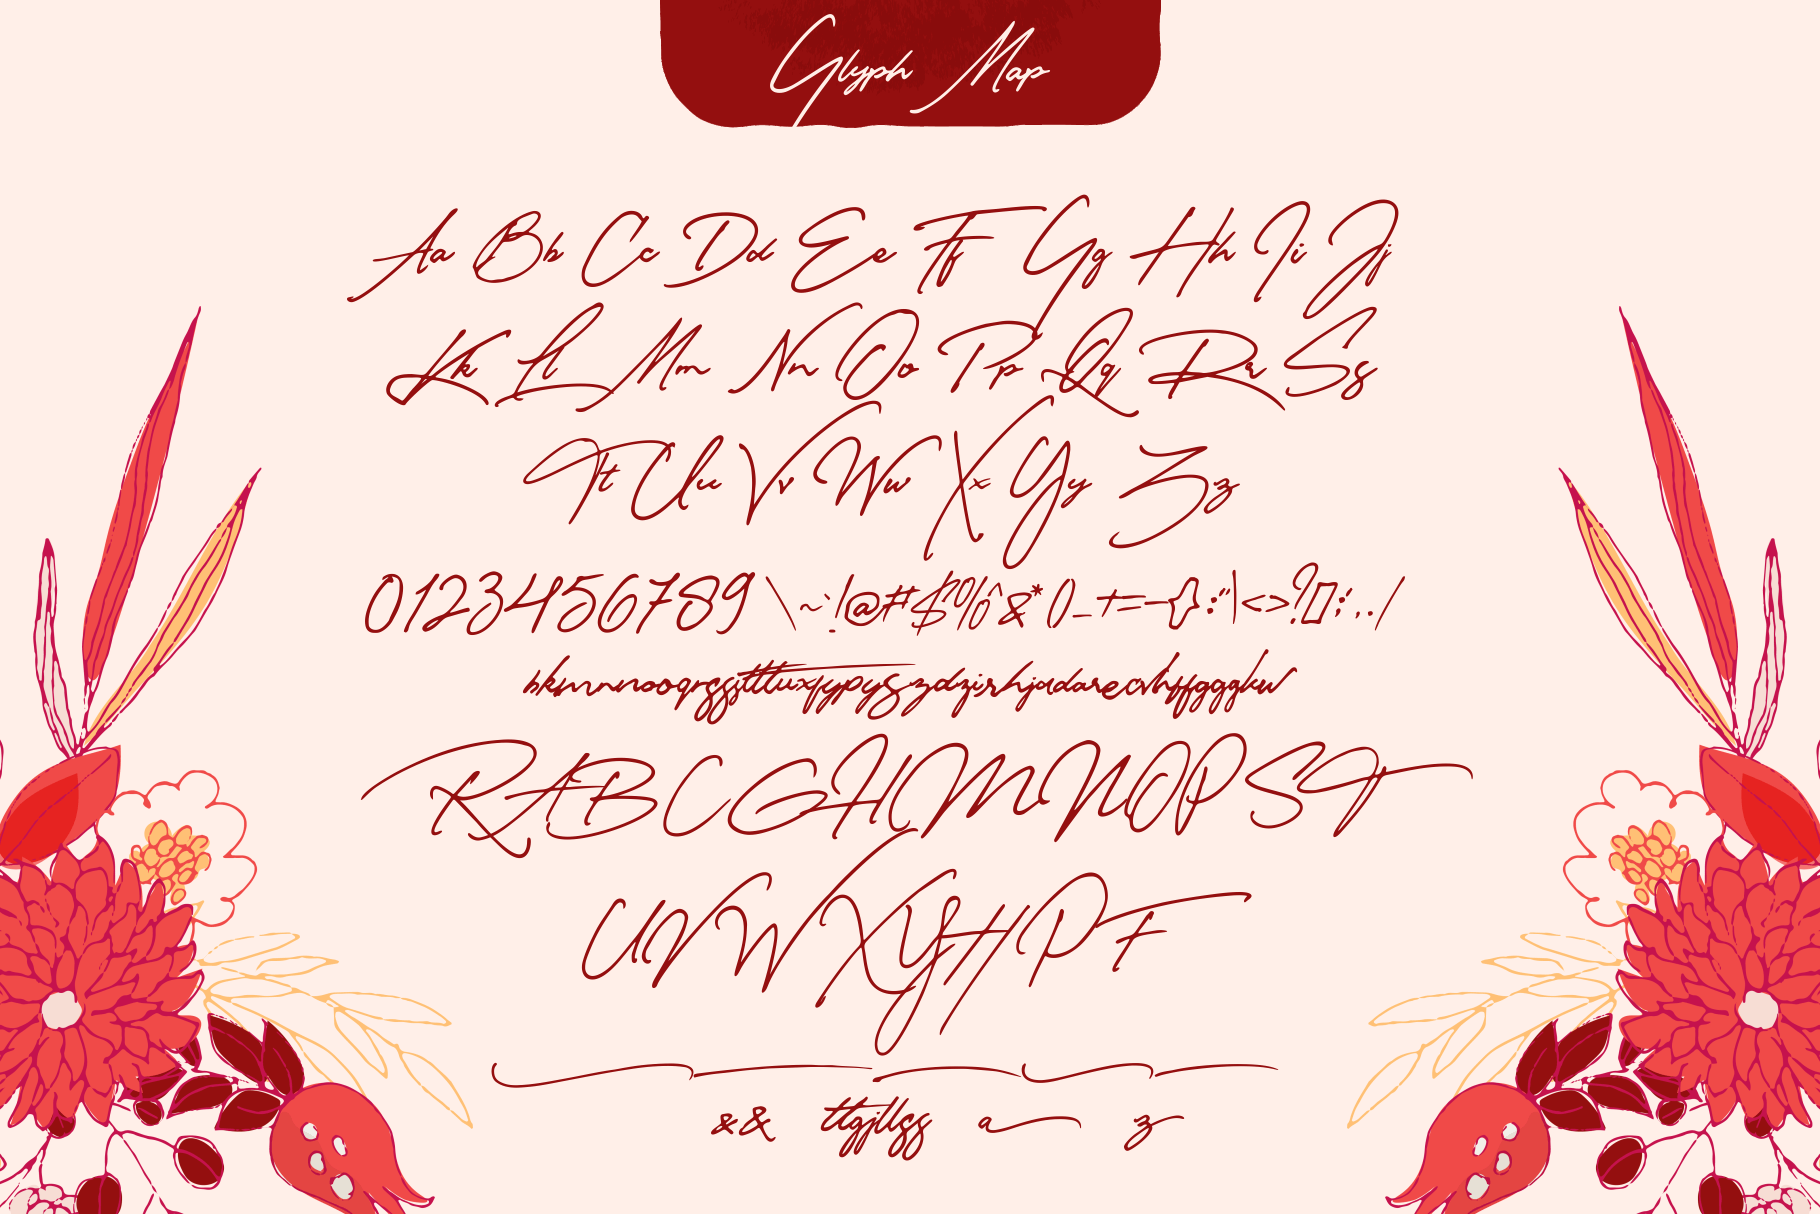 Glyph Map
Aa Bb Cc Dd Ee Ff Gg Hh Ii Jj
Kk Ll Mm Nn Oo Pp Qq Rr Ss
Tt Uu Vv Ww Xx Yy Zz
0123456789 \~`!@#$%^&*()_+=-{}:"|<>?[];',./
RABCGHMNOPST
UVWXYHPF
&&
a z